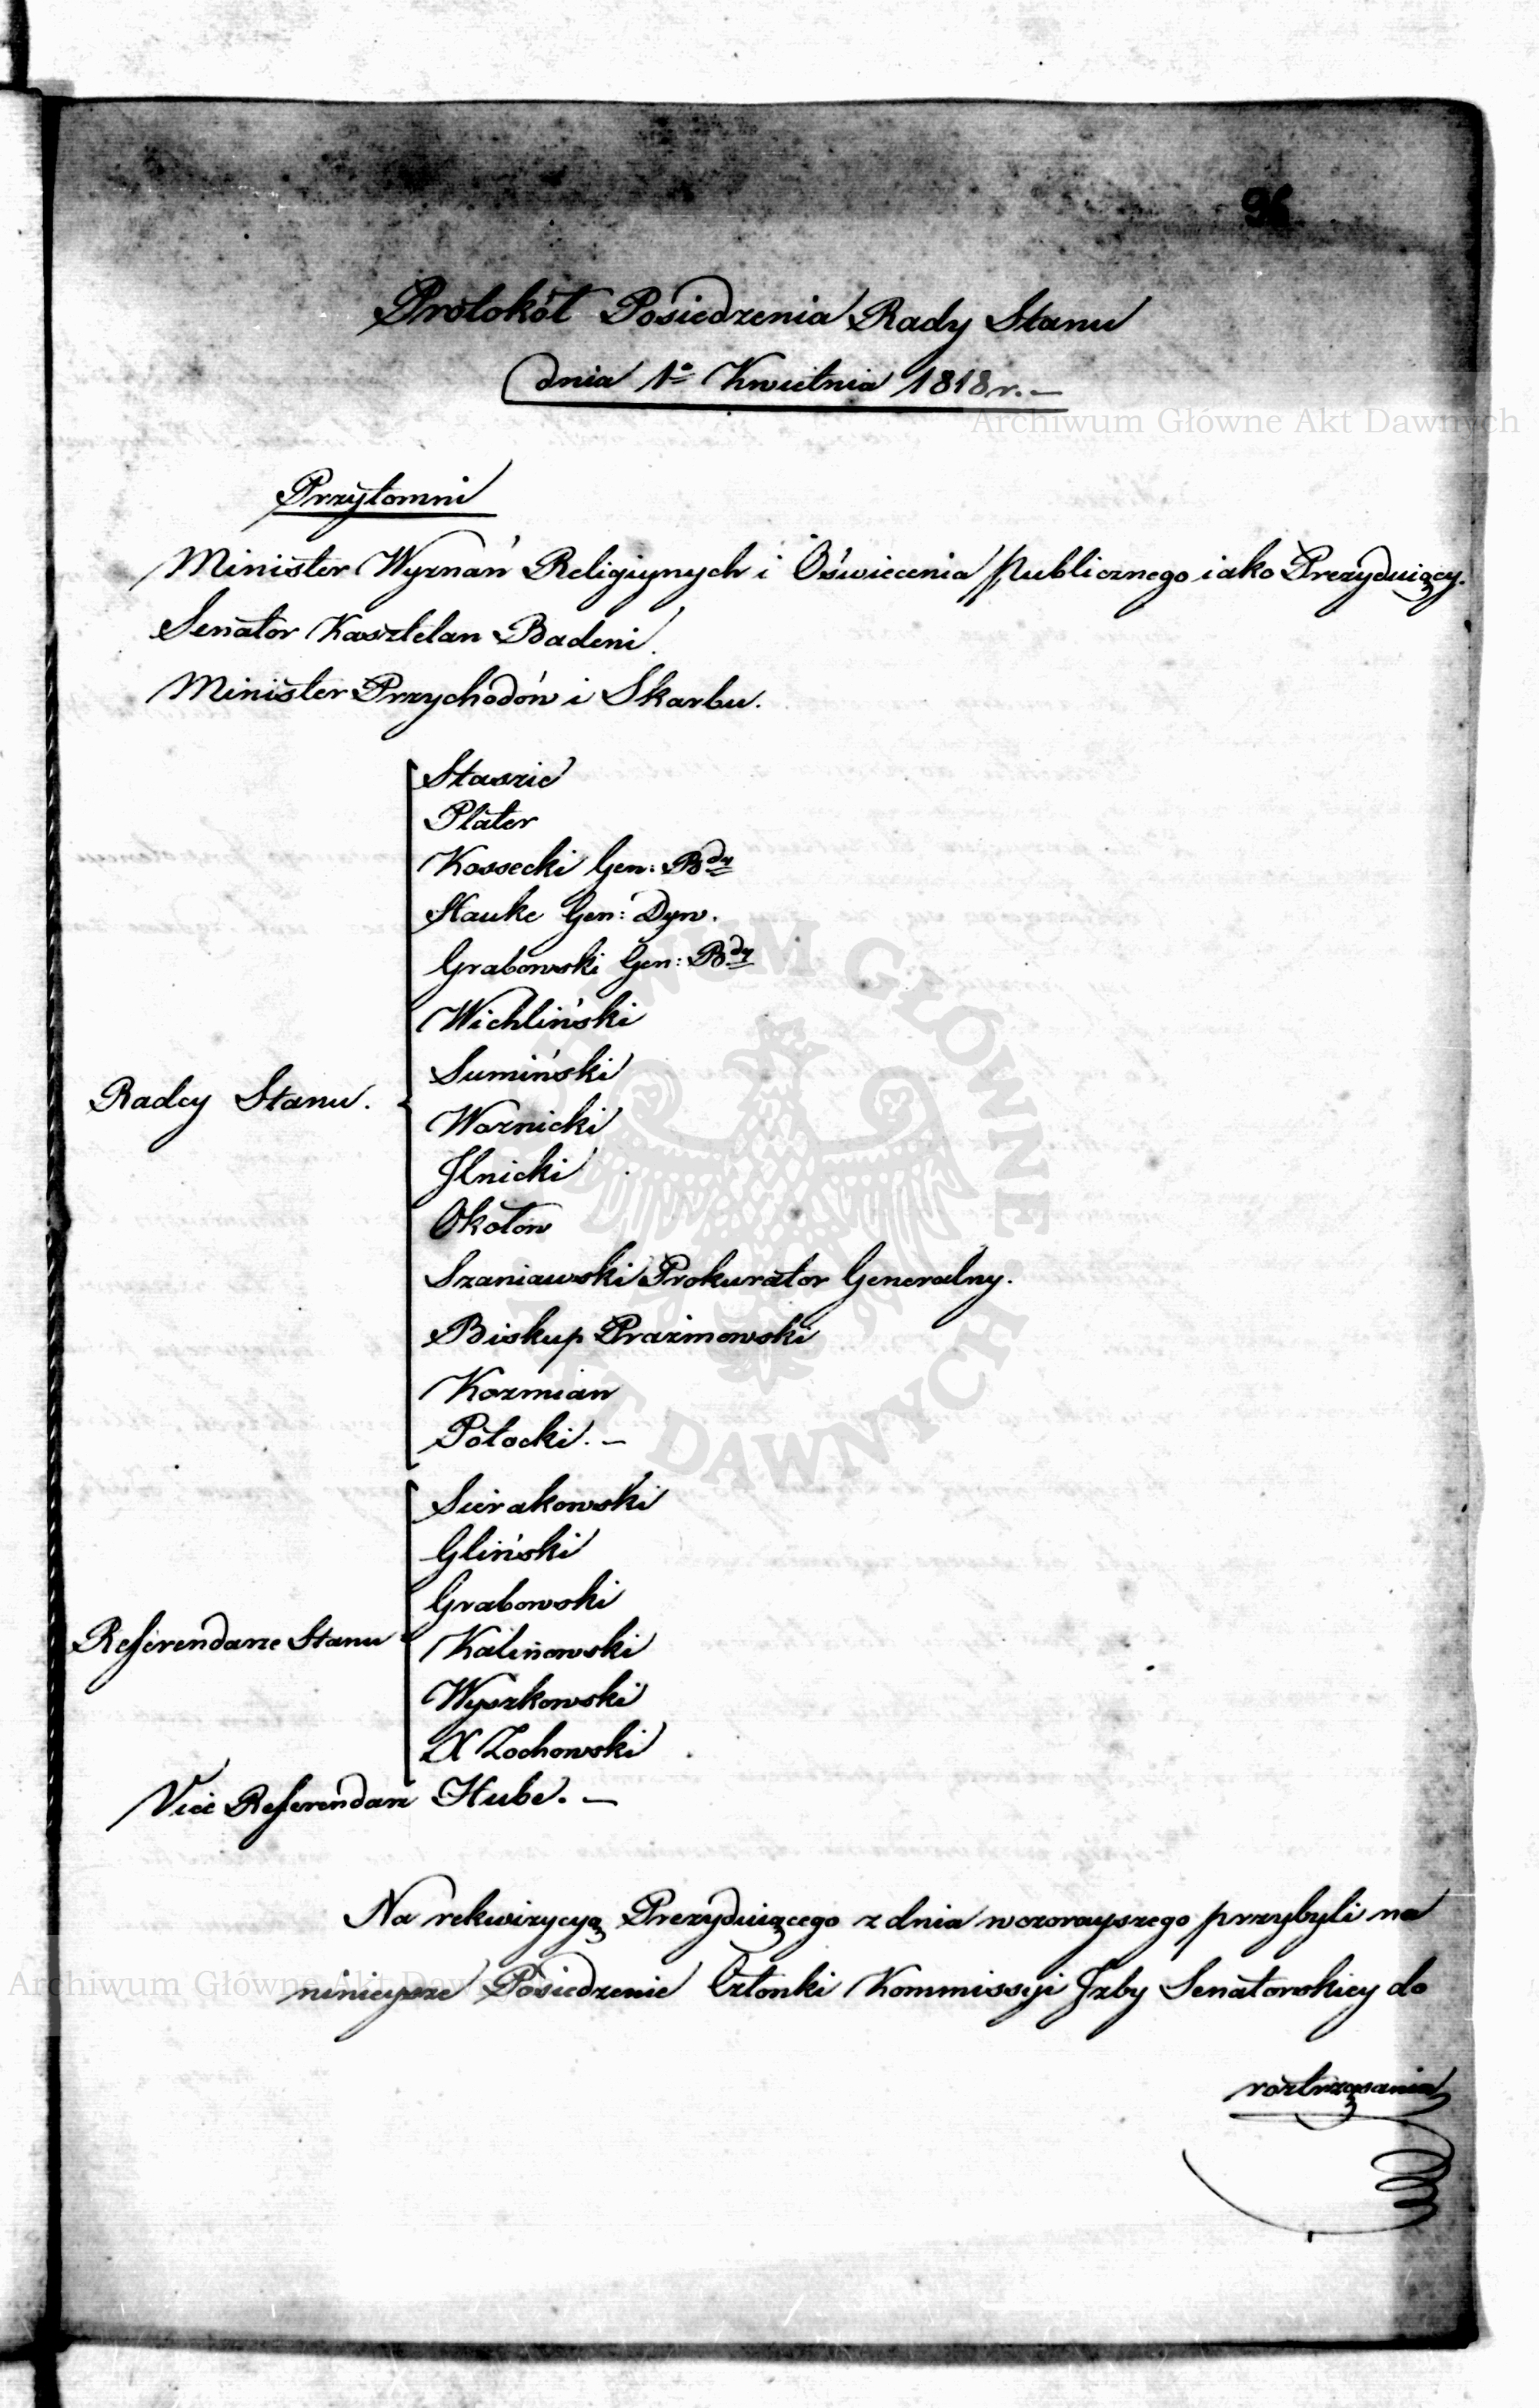 96
Protokół Posiedzenia Rady Stanu
dnia 1º Kwietnia 1818 r. —
Archiwum Główne Akt Dawnych
Przytomni
Minister Wyznań Religiynych i Oświecenia Publicznego iako Prezyduiący.
Senator Kasztelan Badeni.
Minister Przychodów i Skarbu.
Staszic
Plater
Kossecki Gen: Bdy
Hauke Gen: Dyw.
Grabowski Gen: Bdy
Wichliński
Sumiński
Radcy Stanu.
Woznicki
Jlnicki
Okołow
Szaniawski Prokurator Generalny.
Biskup Prazmowski
Kozmian
Potocki. —
Sierakowski
Gliński
Grabowski
Referendarze Stanu
Kalinowski
Wyszkowski
X Zochowski
Vice Referendarz Hube. —
Na rekwizycyą Prezyduiącego z dnia wczorayszego przybyli na
Archiwum Główne Akt Dawnych
ninieysze Posiedzenie Członki Kommissyi Jzby Senatorskiey do
roztrząsania
ARCHIWUM GŁÓWNE AKT DAWNYCH